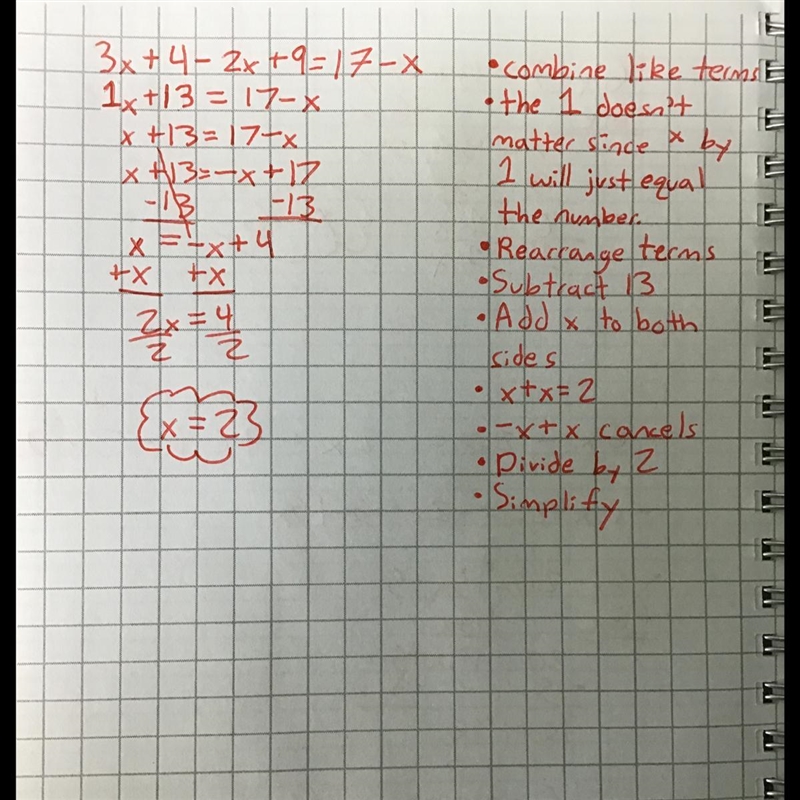 3x+4-2x+9=17-x
1x+13=17-x
x+13=17-x
x+13=-x+17
-13 -13
x=-x+4
+x +x
2x=4
2 2
x=2
• combine like terms
• the 1 doesn't
matter since x by
1 will just equal
the number.
• Rearrange terms
• Subtract 13
• Add x to both
sides
• x+x=2
• -x+x cancels
• Divide by 2
• Simplify